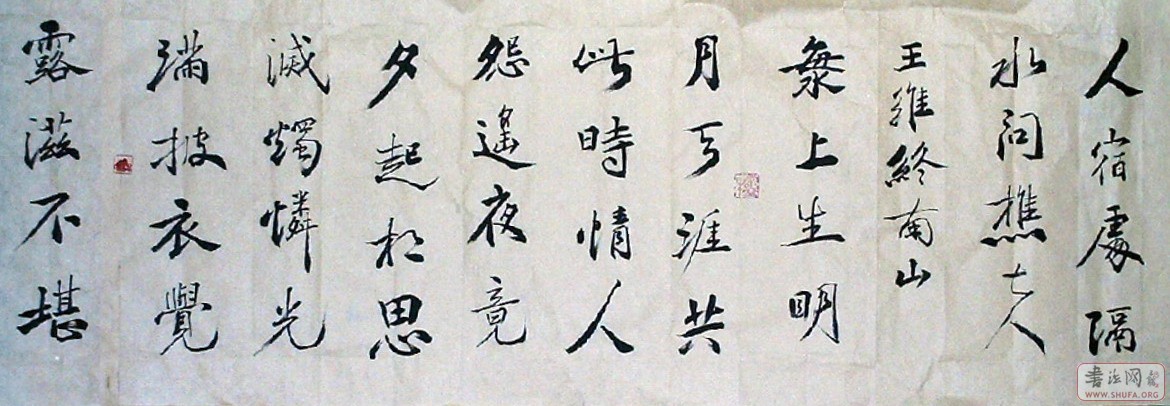 人宿處隔
水問樵夫
王維終南山
海上生明
月天涯共
此時情人
怨遙夜竟
夕起相思
滅燭憐光
滿披衣覺
露滋不堪
書法网
WWW.SHUFA.ORG